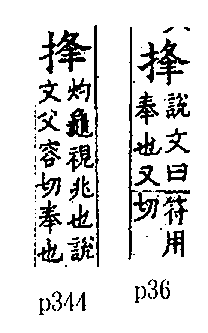 捀
說文曰符用
奉也又切
p36
捀
灼龜視兆也說
文父容切奉也
p344